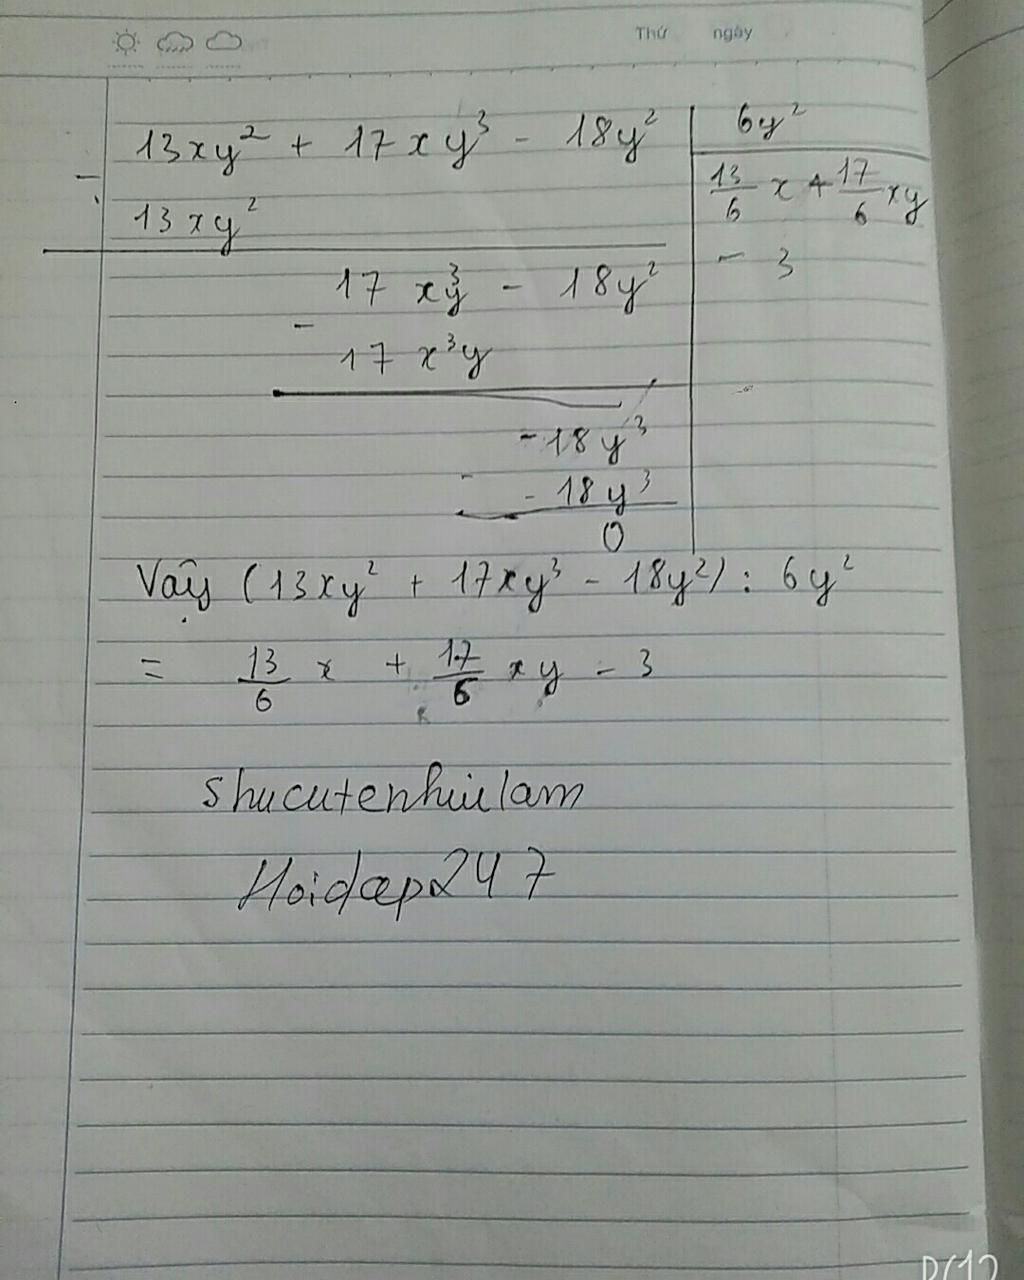 Thứ ngày
13xy² + 17xy³ - 18y² 6y²
- 13xy² 13/6 x + 17/6 xy
- 3
17 xy³ - 18y²
- 17 x³y
-18y³
- -18y³
0
Vậy (13xy² + 17xy³ - 18y²) : 6y²
= 13/6 x + 17/6 xy - 3
shucutenhuulam
Hoidap247